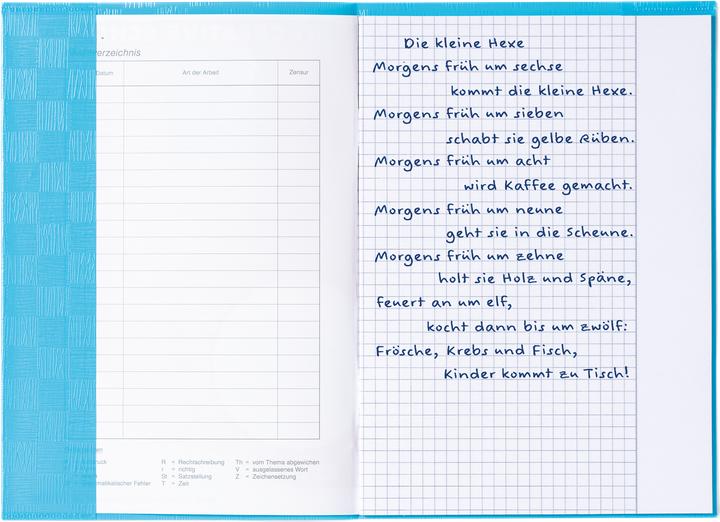 Datum Art der Arbeit Zensur
R = Rechtschreibung Th = vom Thema abgewichen
r = richtig V = ausgelassenes Wort
St = Satzstellung Z = Zeichensetzung
T = Zeit
Die kleine Hexe
Morgens früh um sechse
kommt die kleine Hexe.
Morgens früh um sieben
schabt sie gelbe Rüben.
Morgens früh um acht
wird Kaffee gemacht.
Morgens früh um neune
geht sie in die Scheune.
Morgens früh um zehne
holt sie Holz und Späne,
feuert an um elf,
kocht dann bis um zwölf:
Frösche, Krebs und Fisch,
Kinder kommt zu Tisch!